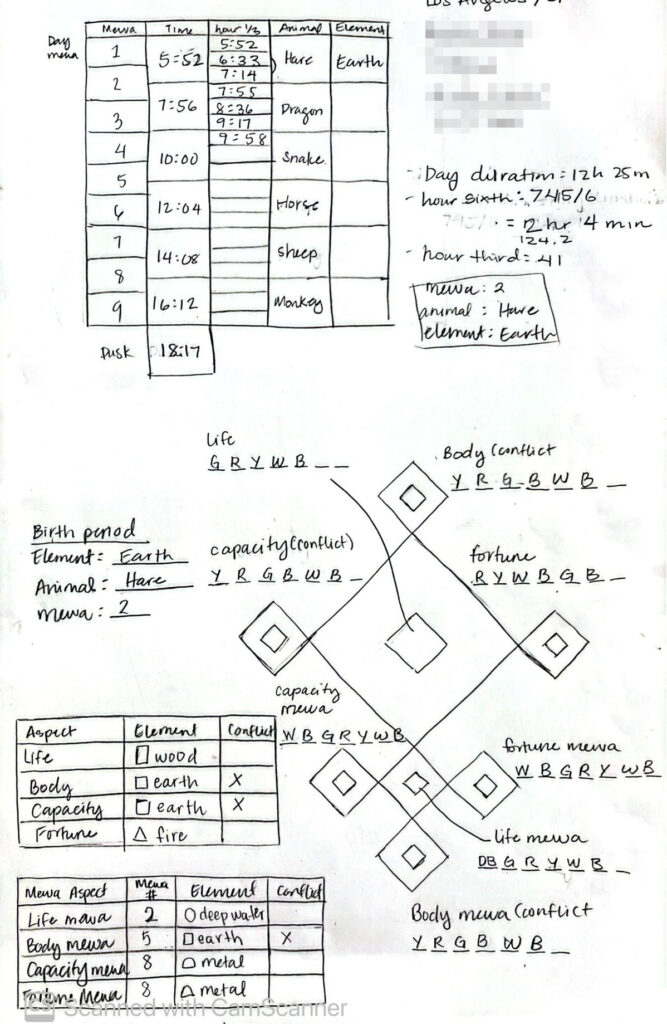 Los Angeles
Day mewa
Mewa Time hour 1/3 Animal Element
1 5:52 5:52 Hare Earth
6:33
2 7:14
7:56 7:55 Dragon
3 8:36
9:17
4 10:00 9:58 Snake
5
6 12:04 Horse
7 14:08 Sheep
8
9 16:12 Monkey
Dusk 18:17
- Day duration = 12h 25m
- hour sixth = 745/6
= 2 hr 4 min
124.2
- hour third = 41
mewa: 2
animal: Hare
element: Earth
Life
G R Y W B _ _
Body (conflict
Y R G B W B _
Birth period
Element = Earth
Animal = Hare
Mewa: 2
capacity (conflict)
Y R G B W B _
fortune
R Y W B G B _
capacity mewa
W B G R Y W B
fortune mewa
W B G R Y W B
Life mewa
DB G R Y W B _
Body mewa (conflict
Y R G B W B _
Aspect Element Conflict
Life □ wood
Body □ earth X
Capacity □ earth X
Fortune △ fire
Mewa Aspect Mewa # Element Conflict
Life mewa 2 O deep water
Body mewa 5 □ earth X
Capacity mewa 8 metal
Fortune Mewa 8 △ metal
CS Scanned with CamScanner